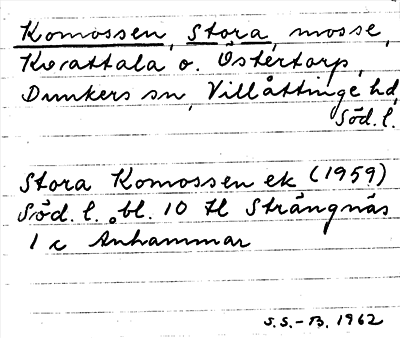 Komossen, Stora, mosse,
Kvattala o. Östertorp,
Dunkers sn, Villåttinge hd,
Söd. l.
Stora Komossen ek (1959)
Söd. l. bl. 10 Hl Strängnäs
1 c Anhammar
S.S.-B. 1962